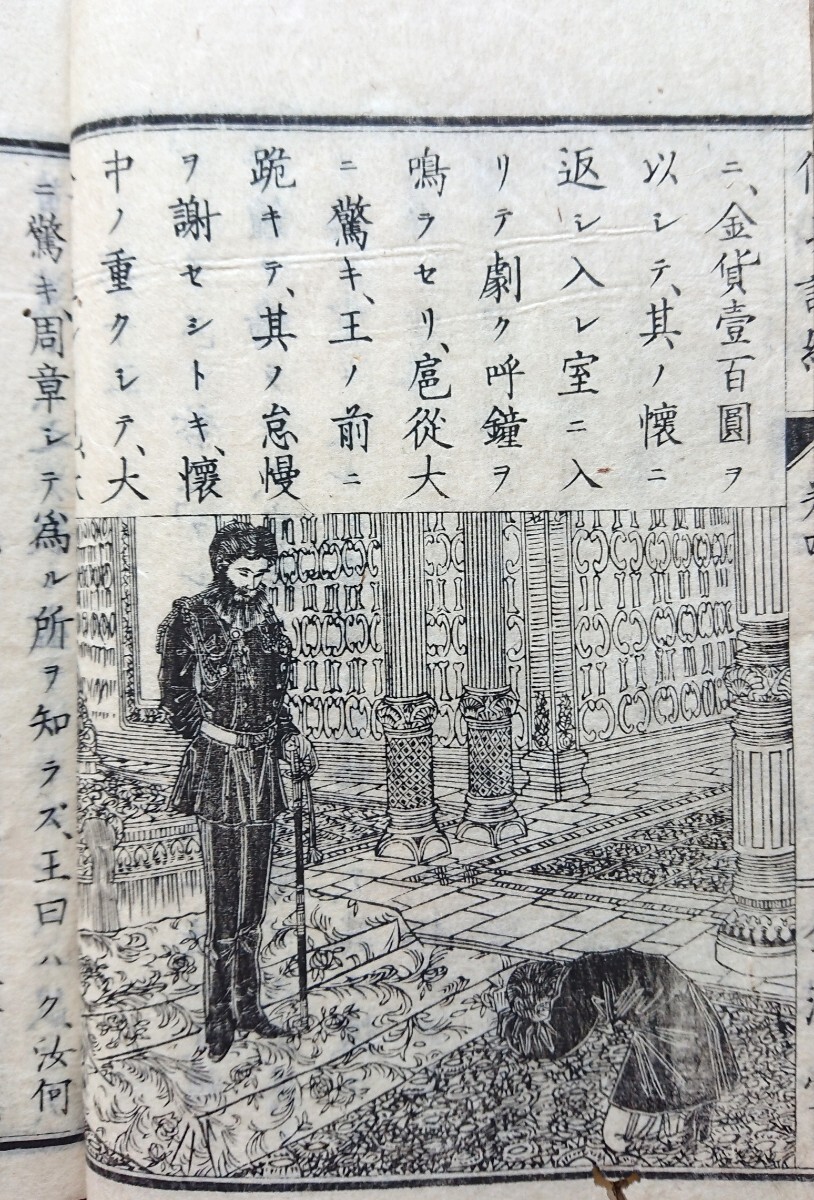 ニ、金貨壹百圓ヲ
以シテ、其ノ懷ニ
返シ入レ室ニ入
リテ劇ク呼鐘ヲ
鳴ラセリ、扈從大
ニ驚キ、王ノ前ニ
跪キテ、其ノ怠慢
ヲ謝セシトキ、懷
中ノ重クシテ、大
ニ驚キ、周章シテ爲ル所ヲ知ラズ、王曰ハク、汝何